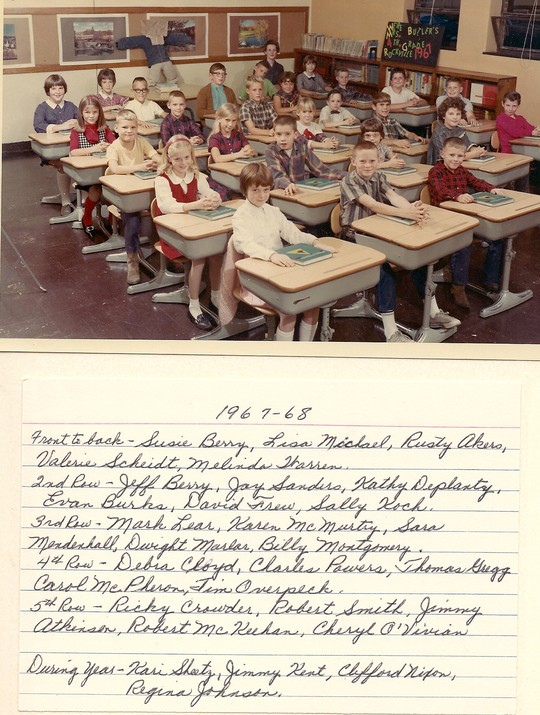 BUTLER'S
4TH GRADE
ROCKVILLE
1967
1967-68
Front to back - Susie Berry, Lisa Michael, Rusty Akers,
Valerie Scheidt, Melinda Warren.
2nd Row - Jeff Berry, Jay Sanders, Kathy Deplanty,
Evan Burks, David Frew, Sally Koch.
3rd Row - Mark Lear, Karen McMurty, Sara
Mendenhall, Dwight Marlar, Billy Montgomery.
4th Row - Debra Cloyd, Charles Powers, Thomas Gregg
Carol McPheron, Tim Overpeck.
5th Row - Ricky Crowder, Robert Smith, Jimmy
Atkinson, Robert McKeehan, Cheryl O'Vivian
During Year - Kari Sheetz, Jimmy Kent, Clifford Nixon,
Regina Johnson.